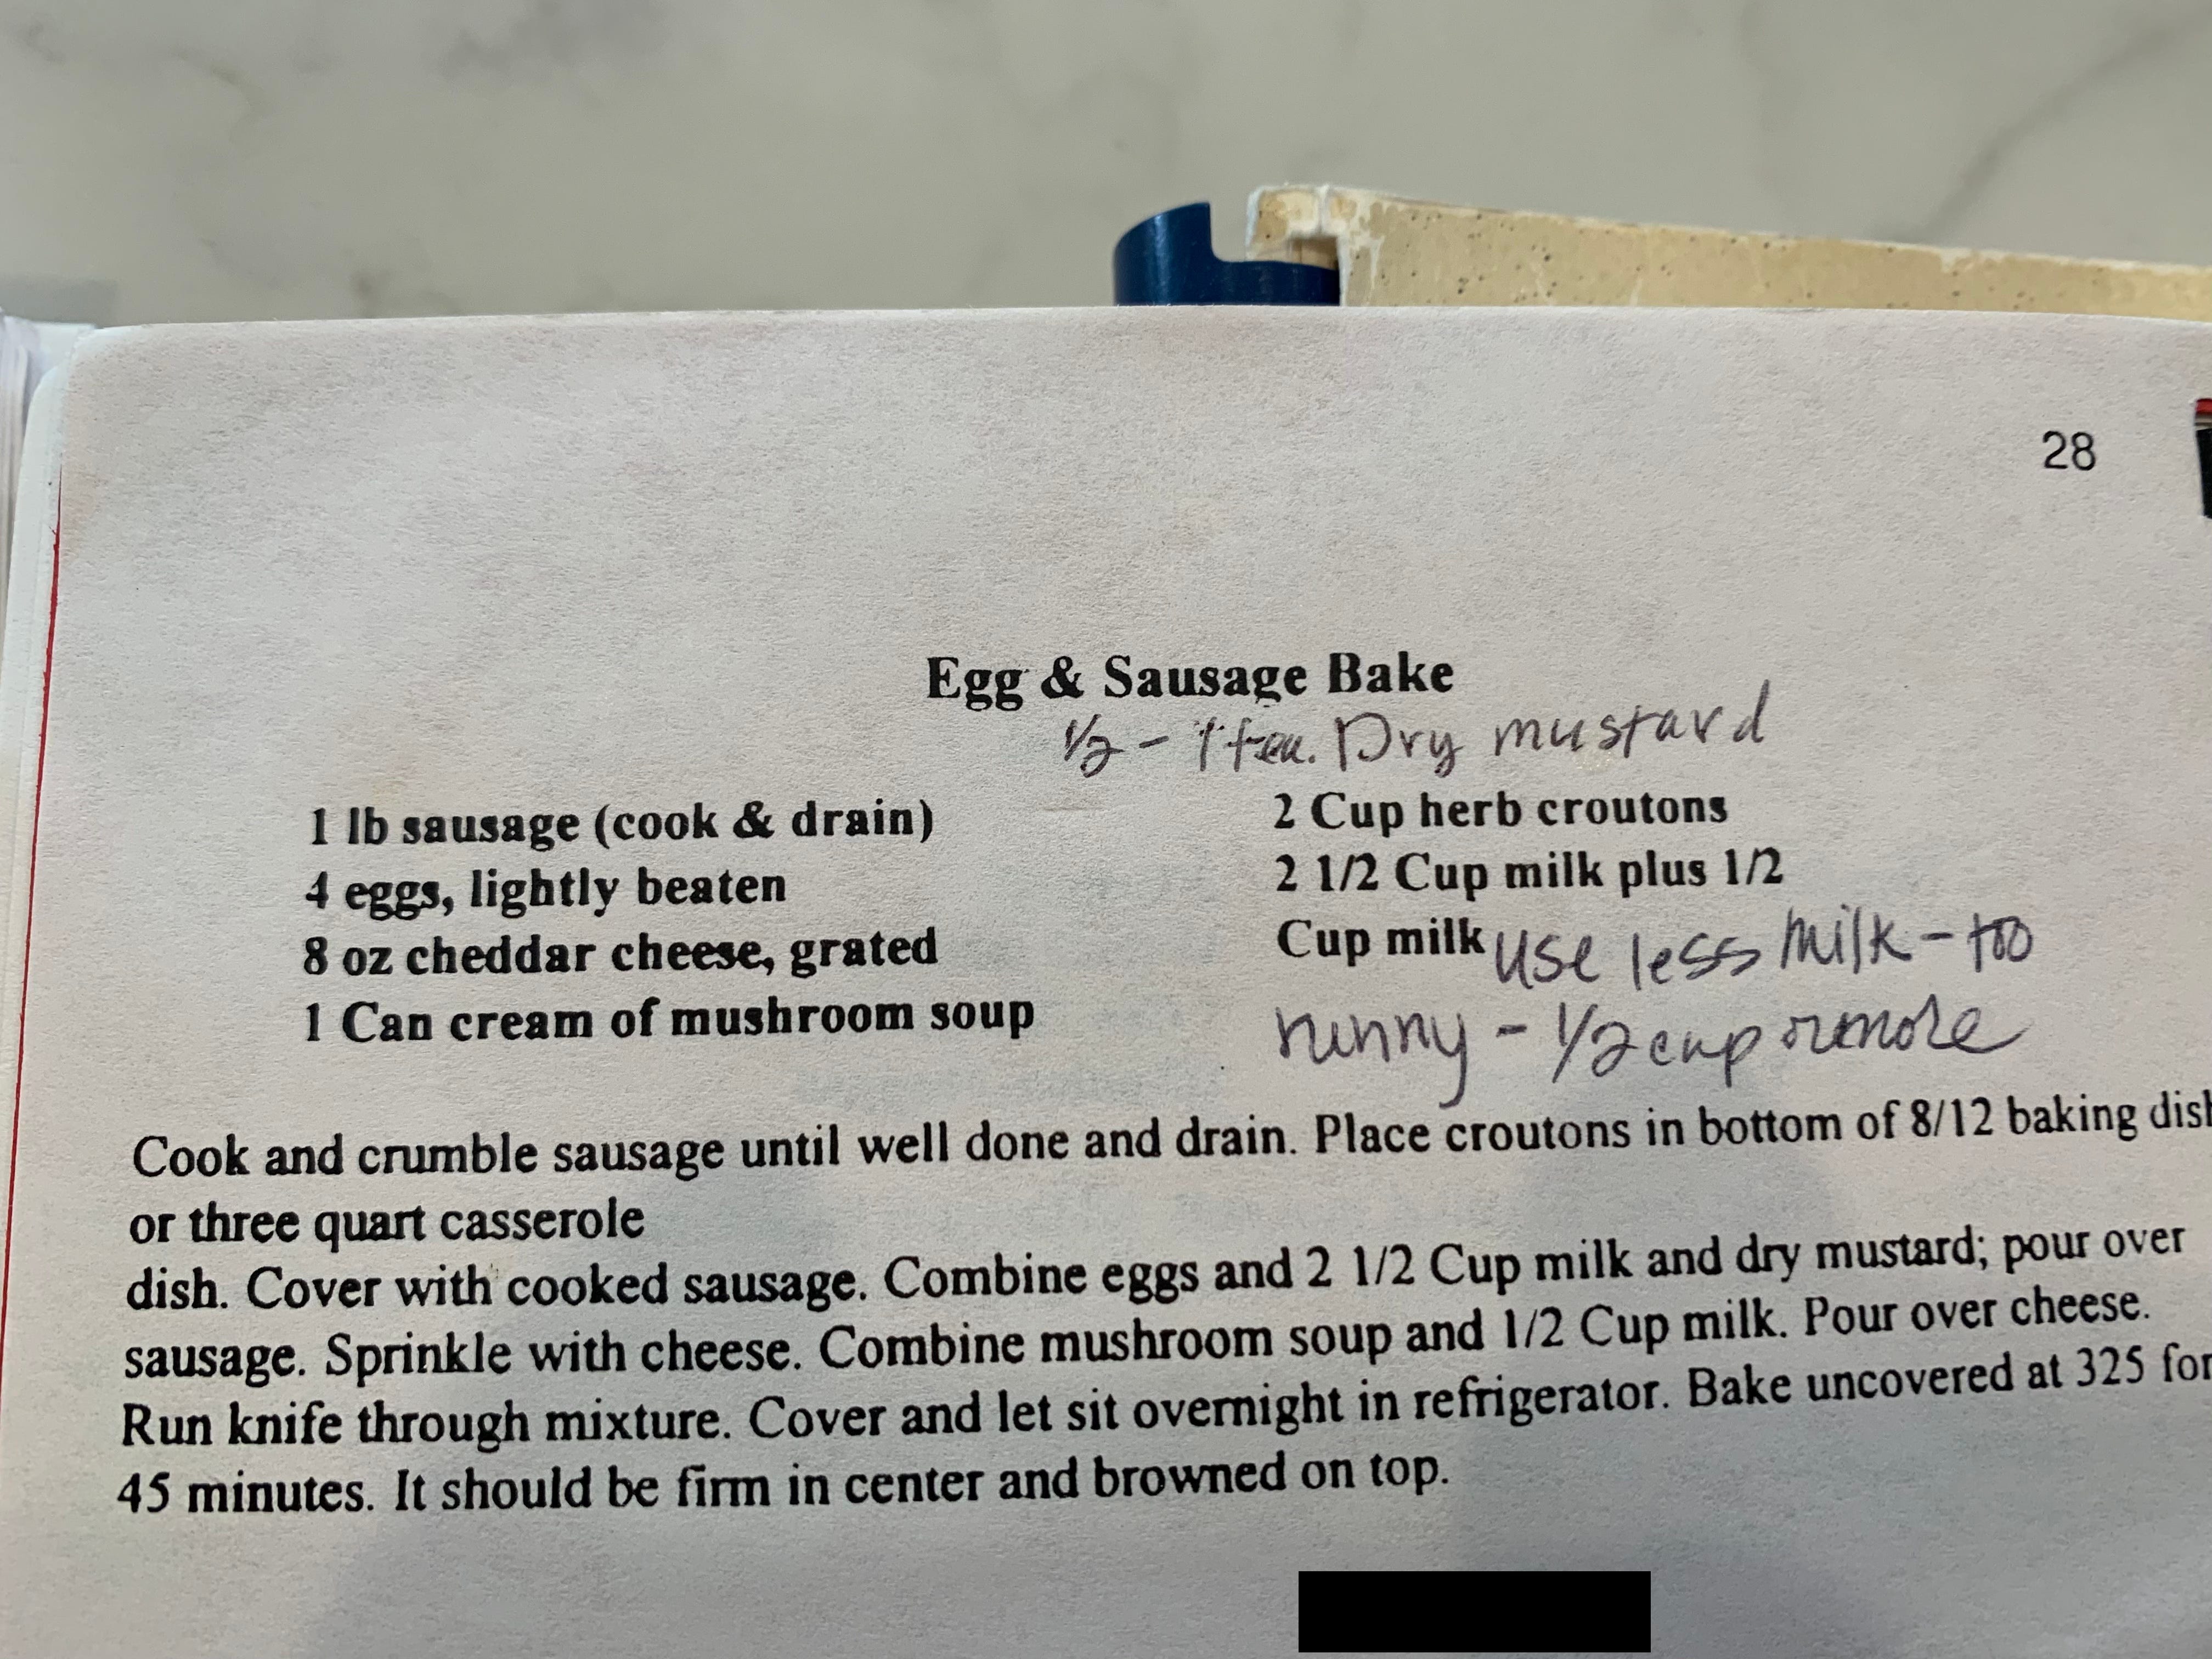 28
Egg & Sausage Bake
1/2 - 1 tea. Dry mustard
1 lb sausage (cook & drain)
4 eggs, lightly beaten
8 oz cheddar cheese, grated
1 Can cream of mushroom soup
2 Cup herb croutons
2 1/2 Cup milk plus 1/2
Cup milk use less milk - too
runny - 1/2 cup or more
Cook and crumble sausage until well done and drain. Place croutons in bottom of 8/12 baking dish
or three quart casserole
dish. Cover with cooked sausage. Combine eggs and 2 1/2 Cup milk and dry mustard; pour over
sausage. Sprinkle with cheese. Combine mushroom soup and 1/2 Cup milk. Pour over cheese.
Run knife through mixture. Cover and let sit overnight in refrigerator. Bake uncovered at 325 for
45 minutes. It should be firm in center and browned on top.